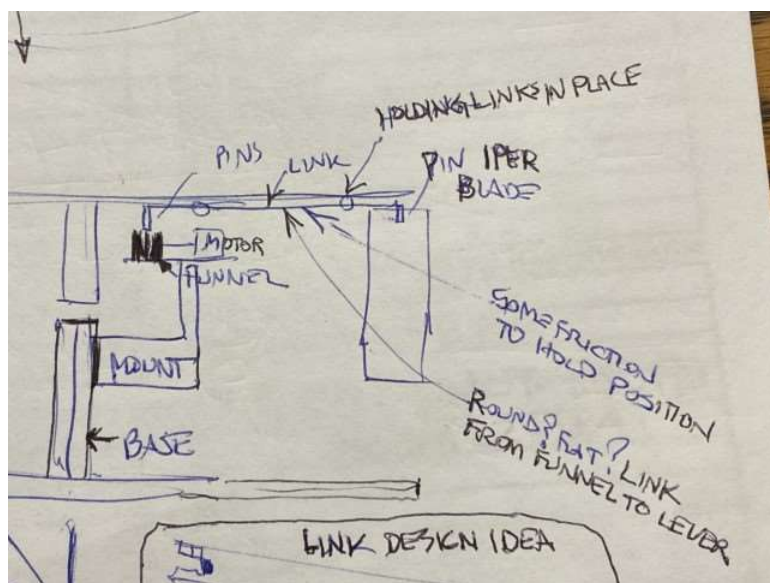 HOLDING LINKS IN PLACE
PINS
LINK
PIN IPER
BLADE
MOTOR
FUNNEL
SOME FRICTION
TO HOLD POSITION
MOUNT
ROUND? FLAT? LINK
FROM FUNNEL TO LEVER
BASE
LINK DESIGN IDEA